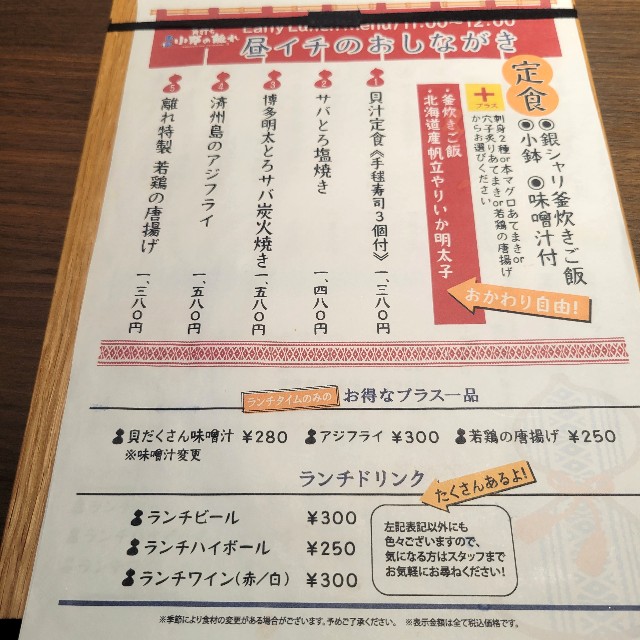 小野の離れ
Early Lunch menu/11:00~12:00
昼イチのおしながき
定食
◉銀シャリ釜炊きご飯
◉小鉢 ◉味噌汁付
プラス
刺身2種or本マグロあてまきor
穴子炙りあてまきor若鶏の唐揚げ
からお選びください
・釜炊きご飯
・北海道産帆立やりいか明太子
おかわり自由!
1 貝汁定食《手毬寿司3個付》 一、三八〇円
2 サバとろ塩焼き 一、四八〇円
3 博多明太とろサバ炭火焼き 一、五八〇円
4 済州島のアジフライ 一、五八〇円
5 離れ特製 若鶏の唐揚げ 一、三八〇円
ランチタイムのみの お得なプラス一品
貝だくさん味噌汁 ¥280 アジフライ ¥300 若鶏の唐揚げ ¥250
※味噌汁変更
ランチドリンク
たくさんあるよ!
ランチビール ¥300
ランチハイボール ¥250
ランチワイン(赤/白) ¥300
左記表記以外にも
色々ございますので、
気になる方はスタッフまで
お気軽にお尋ねください!
※季節により食材の変更がある場合がございます。予めご了承ください。 ※表示金額は全て税込価格です。